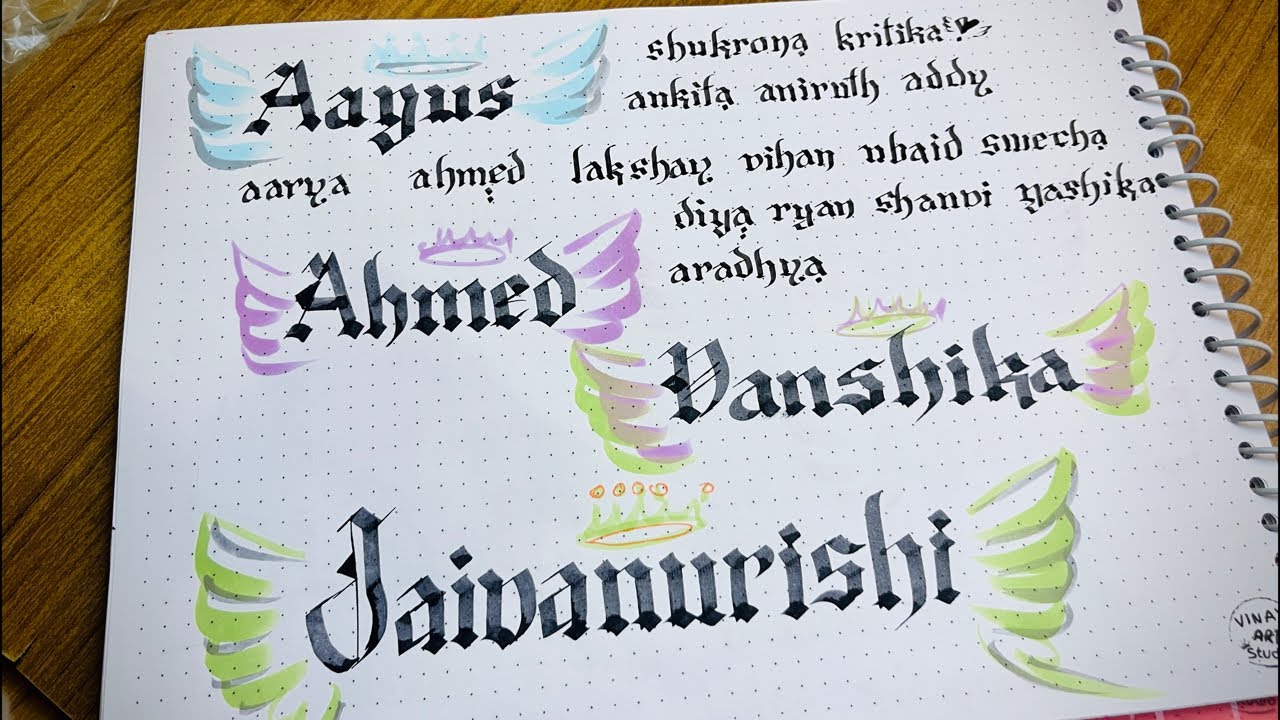 Aayus
shukrona kritika
ankita anirnth addy
aarya ahmed lakshay vihan ubaid swecha
diya ryan shanvi yashika
aradhya
Ahmed
Vanshika
Jaivanurishi
VINA
AR
Stud